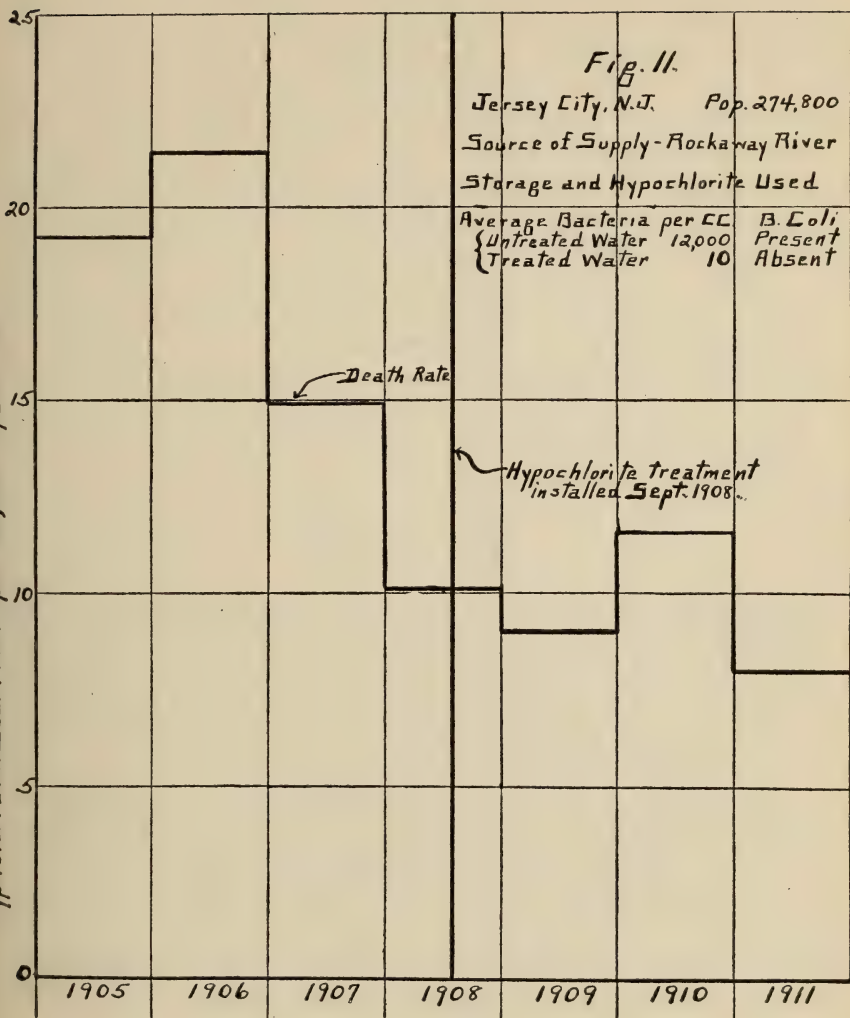 25
Fig. 11.
Jersey City, N.J. Pop. 274,800
Source of Supply-Rockaway River
Storage and Hypochlorite Used
Average Bacteria per CC B. Coli
{Untreated Water 12,000 Present
{Treated Water 10 Absent
20
Death Rate
15
Hypochlorite treatment
installed Sept. 1908.
10
5
0
1905 1906 1907 1908 1909 1910 1911